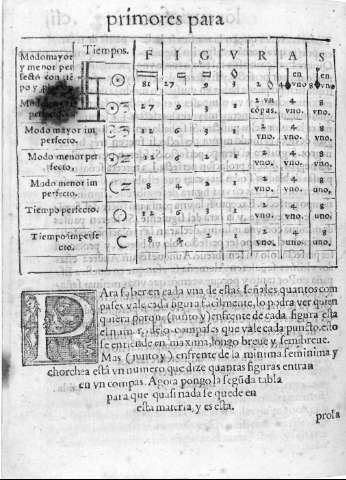 primores para
Tiempos. F I G V R A S
Modo mayor
y menor per
fecto con tiē
po y 81 27 9 3 1 2 4 en vno 8 en vno
Modo
perfecto. 27 9 3 1 2 vn cōpas. 4 vno. 8 vno.
Modo mayor im
perfecto. 12 6 3 1 2 vno. 4 vno. 8 vno.
Modo menor per
fecto, 12 6 2 1 2 vno. 4 vno. 8 vno.
Modo menor im
perfecto. 8 4 2 1 2 vno. 4 vno. 8 vno.
Tiempo perfecto. 12 6 3 1 2 vno. 4 vno. 8 vno.
Tiempo imperfe
cto. 8 4 2 1 2 vno. 4 vno. 8 vno.
PAra saber en cada vna de estas señales quantos com
pases vale cada figura facilmente, lo podra ver quien
quiera porque (junto) y enfrente de cada figura esta
el num. de los compases que vale cada punto. esto
se entiende en maxima, longo breue y semibreue.
Mas (junto) y enfrente de la minima seminima y
chorchea està vn numero que dize quantas figuras entran
en vn compas. Agora pongo la segūda tabla
para que quasi nada se quede en
esta materia, y es esta.
prola